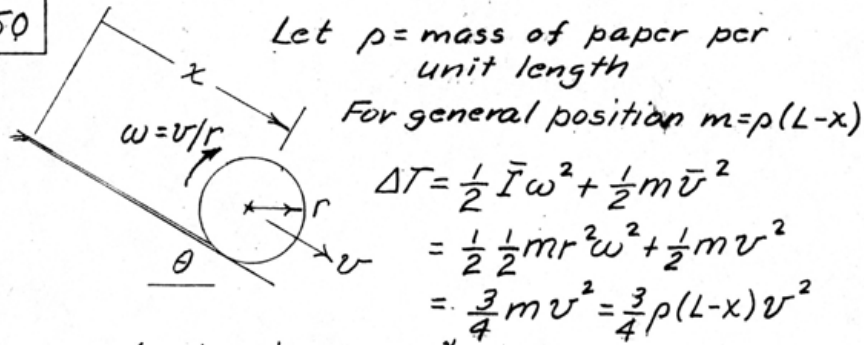 50
Let ρ = mass of paper per
unit length
x
For general position m=ρ(L-x)
ω=v/r
ΔT = 1/2 Īω² + 1/2 m v̄²
r
= 1/2 1/2 mr²ω² + 1/2 mv²
θ
v
= 3/4 mv² = 3/4 ρ(L-x)v²